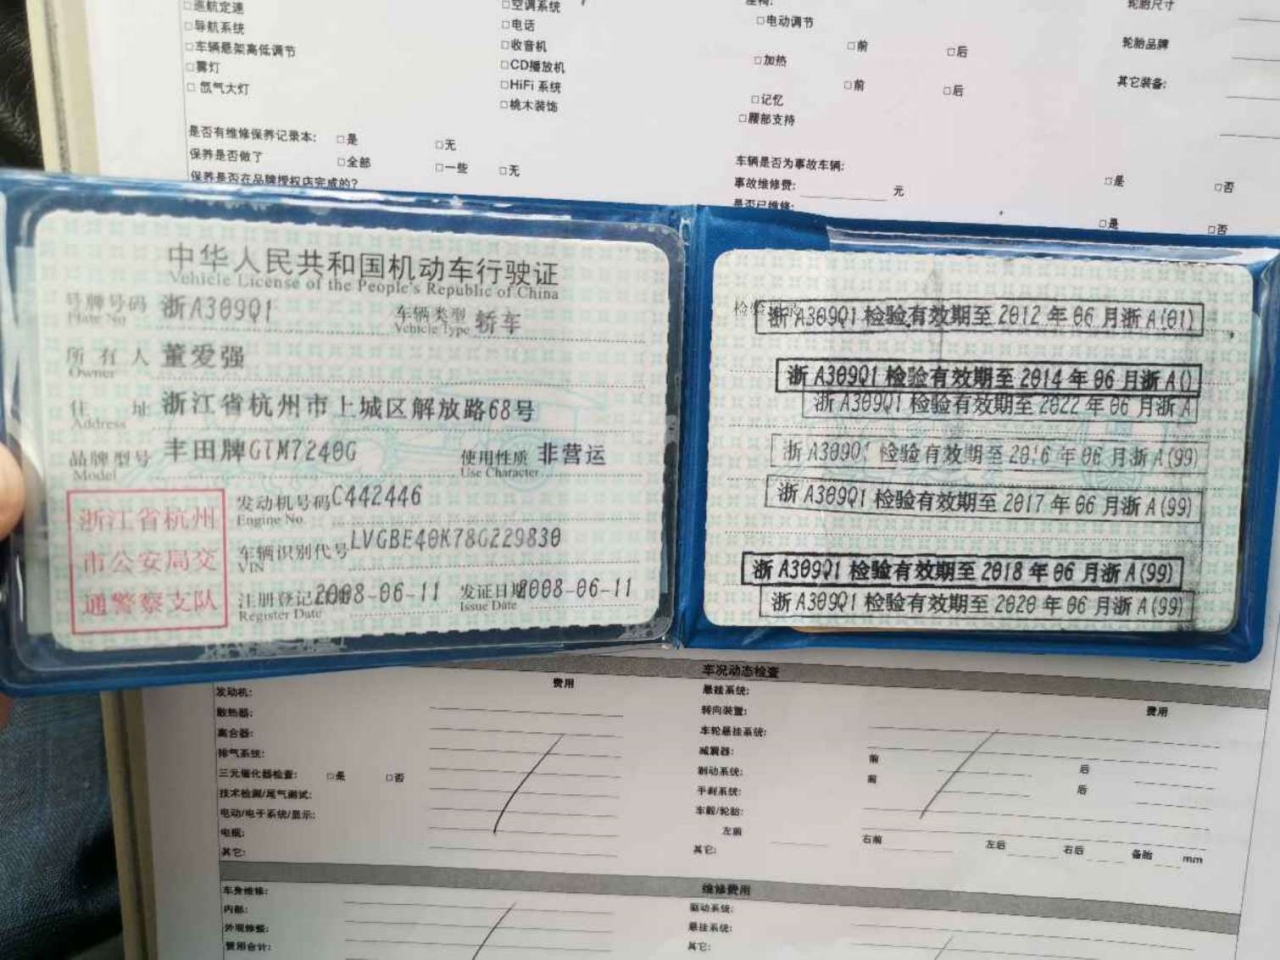 巡航定速
导航系统
车辆悬架高低调节
雾灯
氙气大灯
空调系统
电话
收音机
CD播放机
HiFi 系统
桃木装饰
电动调节
前 后
加热
前 后
记忆
腰部支持
轮胎尺寸
轮胎品牌
其它装备:
是否有维修保养记录本: 是 无
保养是否做了 全部 一些 无
保养是否在品牌授权店完成的?
车辆是否为事故车辆: 是 否
事故维修费: 元
是否已维修: 是 否
中华人民共和国机动车行驶证
Vehicle License of the People's Republic of China
号牌号码 浙A309Q1 车辆类型 轿车
Plate No. Vehicle Type
所有人 董爱强
Owner
住址 浙江省杭州市上城区解放路68号
Address
品牌型号 丰田牌GTM7240G 使用性质 非营运
Model Use Character
浙江省杭州
市公安局交
通警察支队
发动机号码 C442446
Engine No.
车辆识别代号 LVGBE40K78G229830
VIN
注册登记 2008-06-11 发证日期 2008-06-11
Register Date Issue Date
浙A309Q1 检验有效期至 2012 年 06 月浙A(01)
浙A309Q1 检验有效期至 2014 年 06 月浙A()
浙A309Q1 检验有效期至 2022 年 06 月浙A
浙A309Q1 检验有效期至 2016 年 06 月浙A(99)
浙A309Q1 检验有效期至 2017 年 06 月浙A(99)
浙A309Q1 检验有效期至 2018 年 06 月浙A(99)
浙A309Q1 检验有效期至 2020 年 06 月浙A(99)
车况动态检查
发动机: 费用
散热器:
离合器:
排气系统:
三元催化器检查: 是 否
技术检测/尾气测试:
电动/电子系统/显示:
电瓶:
其它:
悬挂系统: 费用
转向装置:
车轮悬挂系统:
减震器: 前 后
制动系统: 前 后
手刹系统:
车毂/轮胎:
左前 右前 左后 右后 备胎 mm
其它:
维修费用
车身维修:
内部:
外观修整:
费用合计:
驱动系统:
悬挂系统:
其它: